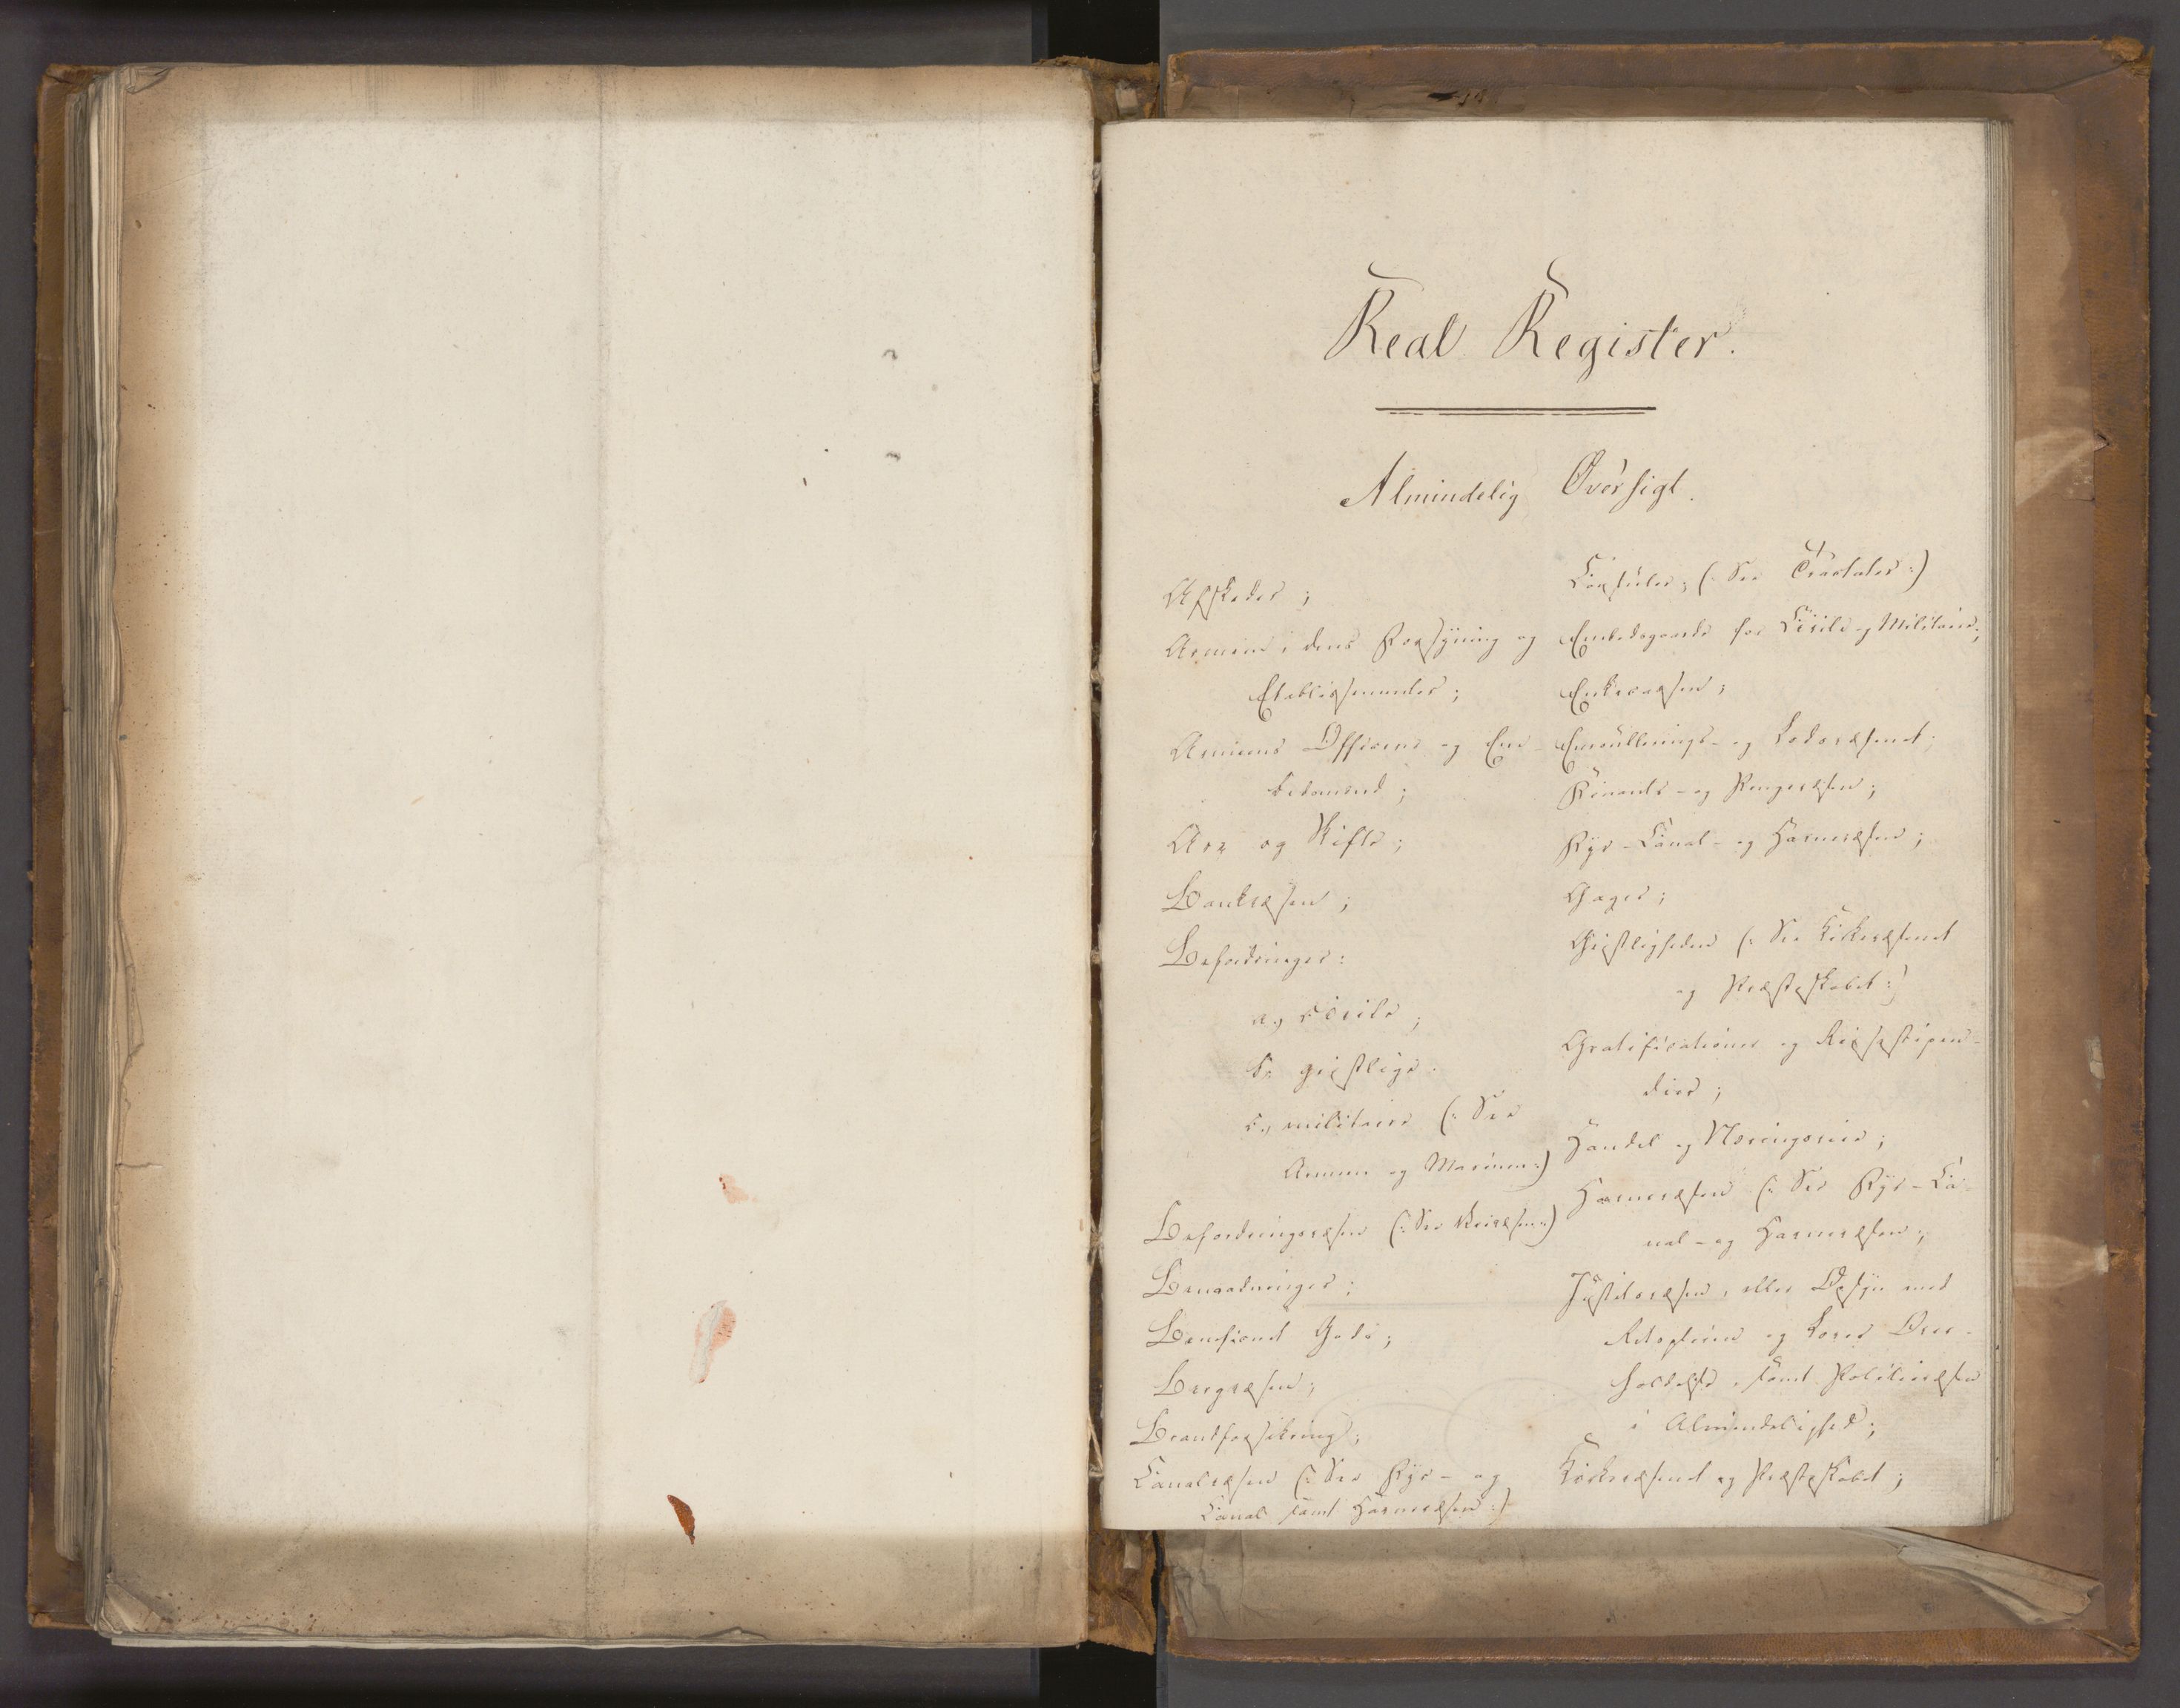 Real Register.
Almindelig Oversigt.
Afskeder;
Armeen i dens Forsyning og
Etablissementer;
Armeens Officerer og Em-
bedsmænd;
Arv og Skifte;
Bankvæsen;
Befordringer:
a, Civile;
b, geistlige.
c, militaire (: See
Armeen og Marinen:)
Befordringsvæsen (: See Veivæsen:)
Benaadninger;
Beneficeret Gods;
Bergvæsen;
Brandforsikring;
Canalvæsen (: See Fyr- og
Canal samt Havnevæsen:)
Consuler; (: See Tractater:)
Embedsgaarde for Civile og Militaire;
Enkevæsen;
Enroullerings- og Lodsvæsenet;
Finants- og Pengevæsen;
Fyr- Canal- og Havnevæsen;
Gager;
Geistligheden (: See Kirkevæsenet
og Præsteskabet:)
Gratificationer og Reisestipen-
dier;
Handel og Næringsveie;
Havnevæsen (: See Fyr- Ca-
nal- og Havnevæsen;
Justitsvæsen, eller Opsyn med
Retspleien og Loves Over-
holdelse, samt Politievæsen
i Almindelighed;
Kirkevæsenet og Præsteskabet;